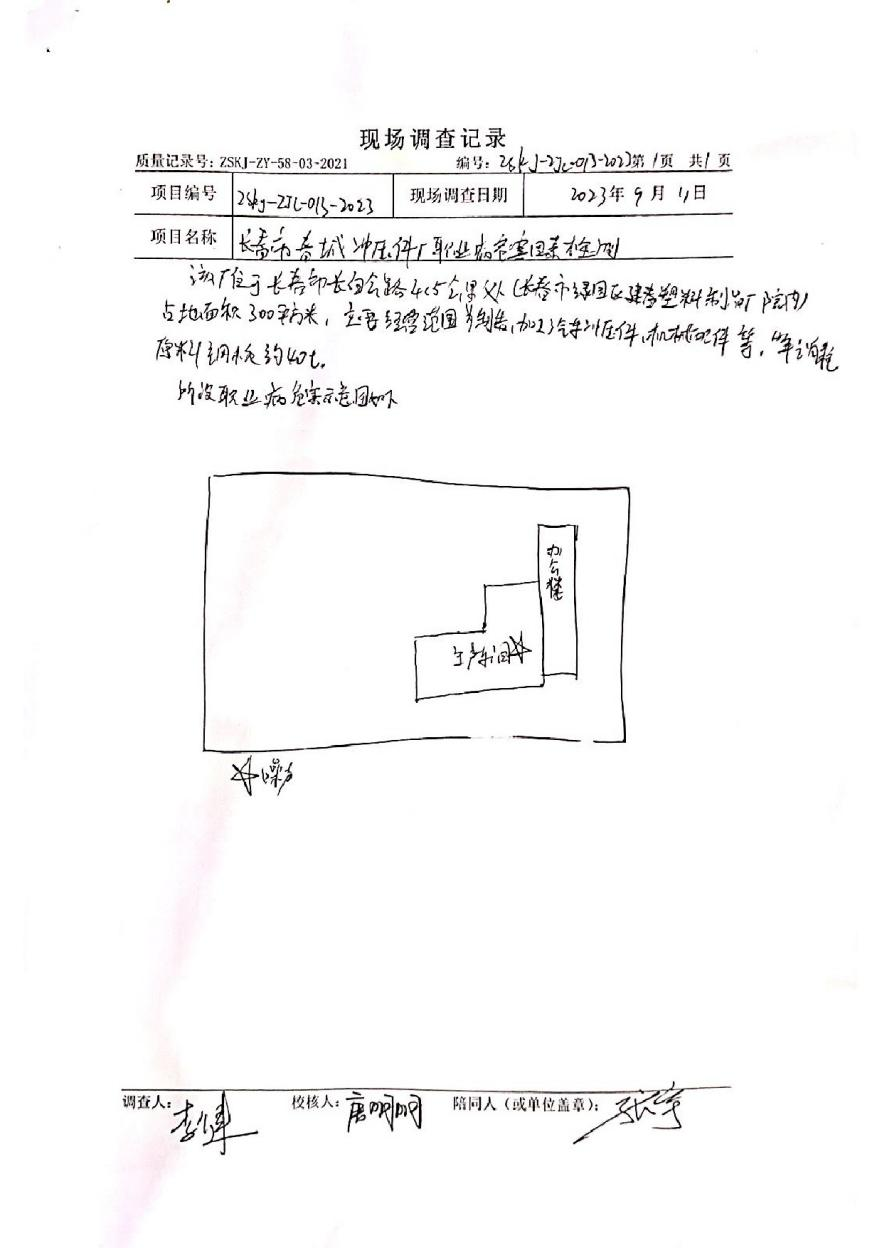 现场调查记录
质量记录号：ZSKJ-ZY-58-03-2021 编号：ZSKJ-ZJC-013-2023 第1页 共1页
项目编号 ZSKJ-ZJC-013-2023 现场调查日期 2023年9月11日
项目名称 长春市春城冲压件厂职业病危害因素检测
该厂位于长春市长伊公路4.5公里处（长春市绿园区建春塑料制品厂院内）
占地面积300平方米，主要经营范围为制造、加工汽车冲压件、机械配件等，年消耗
原料钢板约40t。
所设职业病危害示意图如下
办公楼
生产车间
噪声
调查人： 校核人：唐明明 陪同人（或单位盖章）：